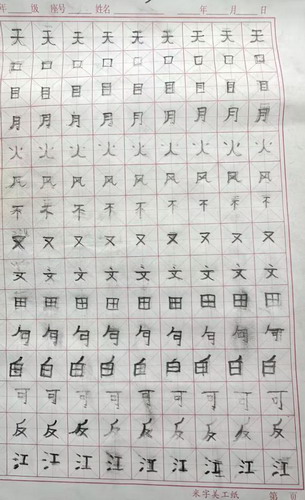 年 级 座号 姓名 年 月 日
天 天 天 天 天 天 天 天
口 口 口 口 口 口 口 口
目 目 目 目 目 目 目 目
月 月 月 月 月 月 月 月
火 火 火 火 火 火 火 火
风 风 风 风 风 风 风 风
不 不 不 不 不 不 不 不
又 又 又 又 又 又 又 又
文 文 文 文 文 文 文 文
田 田 田 田 田 田 田 田
句 句 句 句 句 句 句 句
白 白 白 白 白 白 白 白
可 可 可 可 可 可 可 可
反 反 反 反 反 反 反 反
江 江 江 江 江 江 江 江
米字美工纸 第